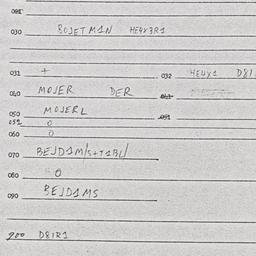 030 BOJETM1N HE4X3R1
031 + 032 HE4X1 D81
040 MOJER DER
050 MOJERL
051 0
060 0
070 BEJD1M/S+T1BL/
080 0
090 BEJD1MS
900 D81R1